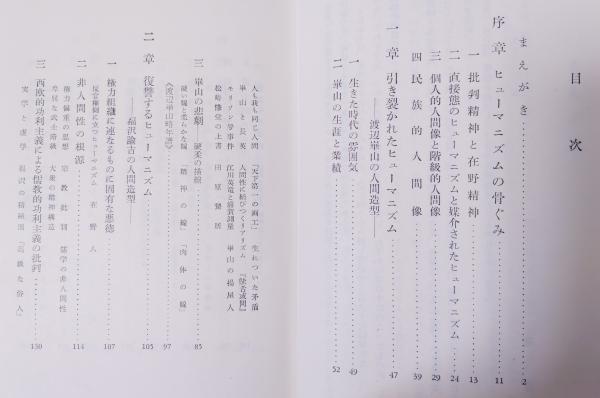 目次
まえがき 2
序章 ヒューマニズムの骨ぐみ 11
一 批判精神と在野精神 13
二 直接態のヒューマニズムと媒介されたヒューマニズム 24
三 個人的人間像と階級的人間像 29
四 民族的人間像 39
一章 引き裂かれたヒューマニズム 47
――渡辺崋山の人間造型――
一 生きた時代の雰囲気 49
二 崋山の生涯と業績 52
人も我も同じ人間 「天下第一の画工」 生れついた矛盾
崋山と長英 人間性に結びつくリアリズム
モリソン号事件 江川英竜と浦賀測量 崋山の揚屋入
松崎慊堂の上書 田原蟄居
三 崋山の悲劇 硬柔の描線 85
硬い線と柔らかな線 「精神の線」 「肉体の線」
《渡辺崋山略年表》 97
二章 復讐するヒューマニズム 105
――福沢諭吉の人間造型――
一 権力組織に連なるものに固有な悪徳 107
反官権威に立つヒューマニズム 在野人
二 非人間性の根源 114
権力偏重の思想 宗教批判 儒学の非人間性
卑屈な武士階級 大衆の精神構造
三 西欧的功利主義による儒教的功利主義の批判 130
実学と虚学 福沢の積極面 「高級な俗人」